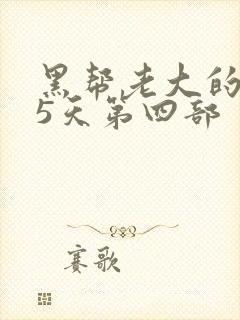 黑帮老大的
5天第四部
赛歌